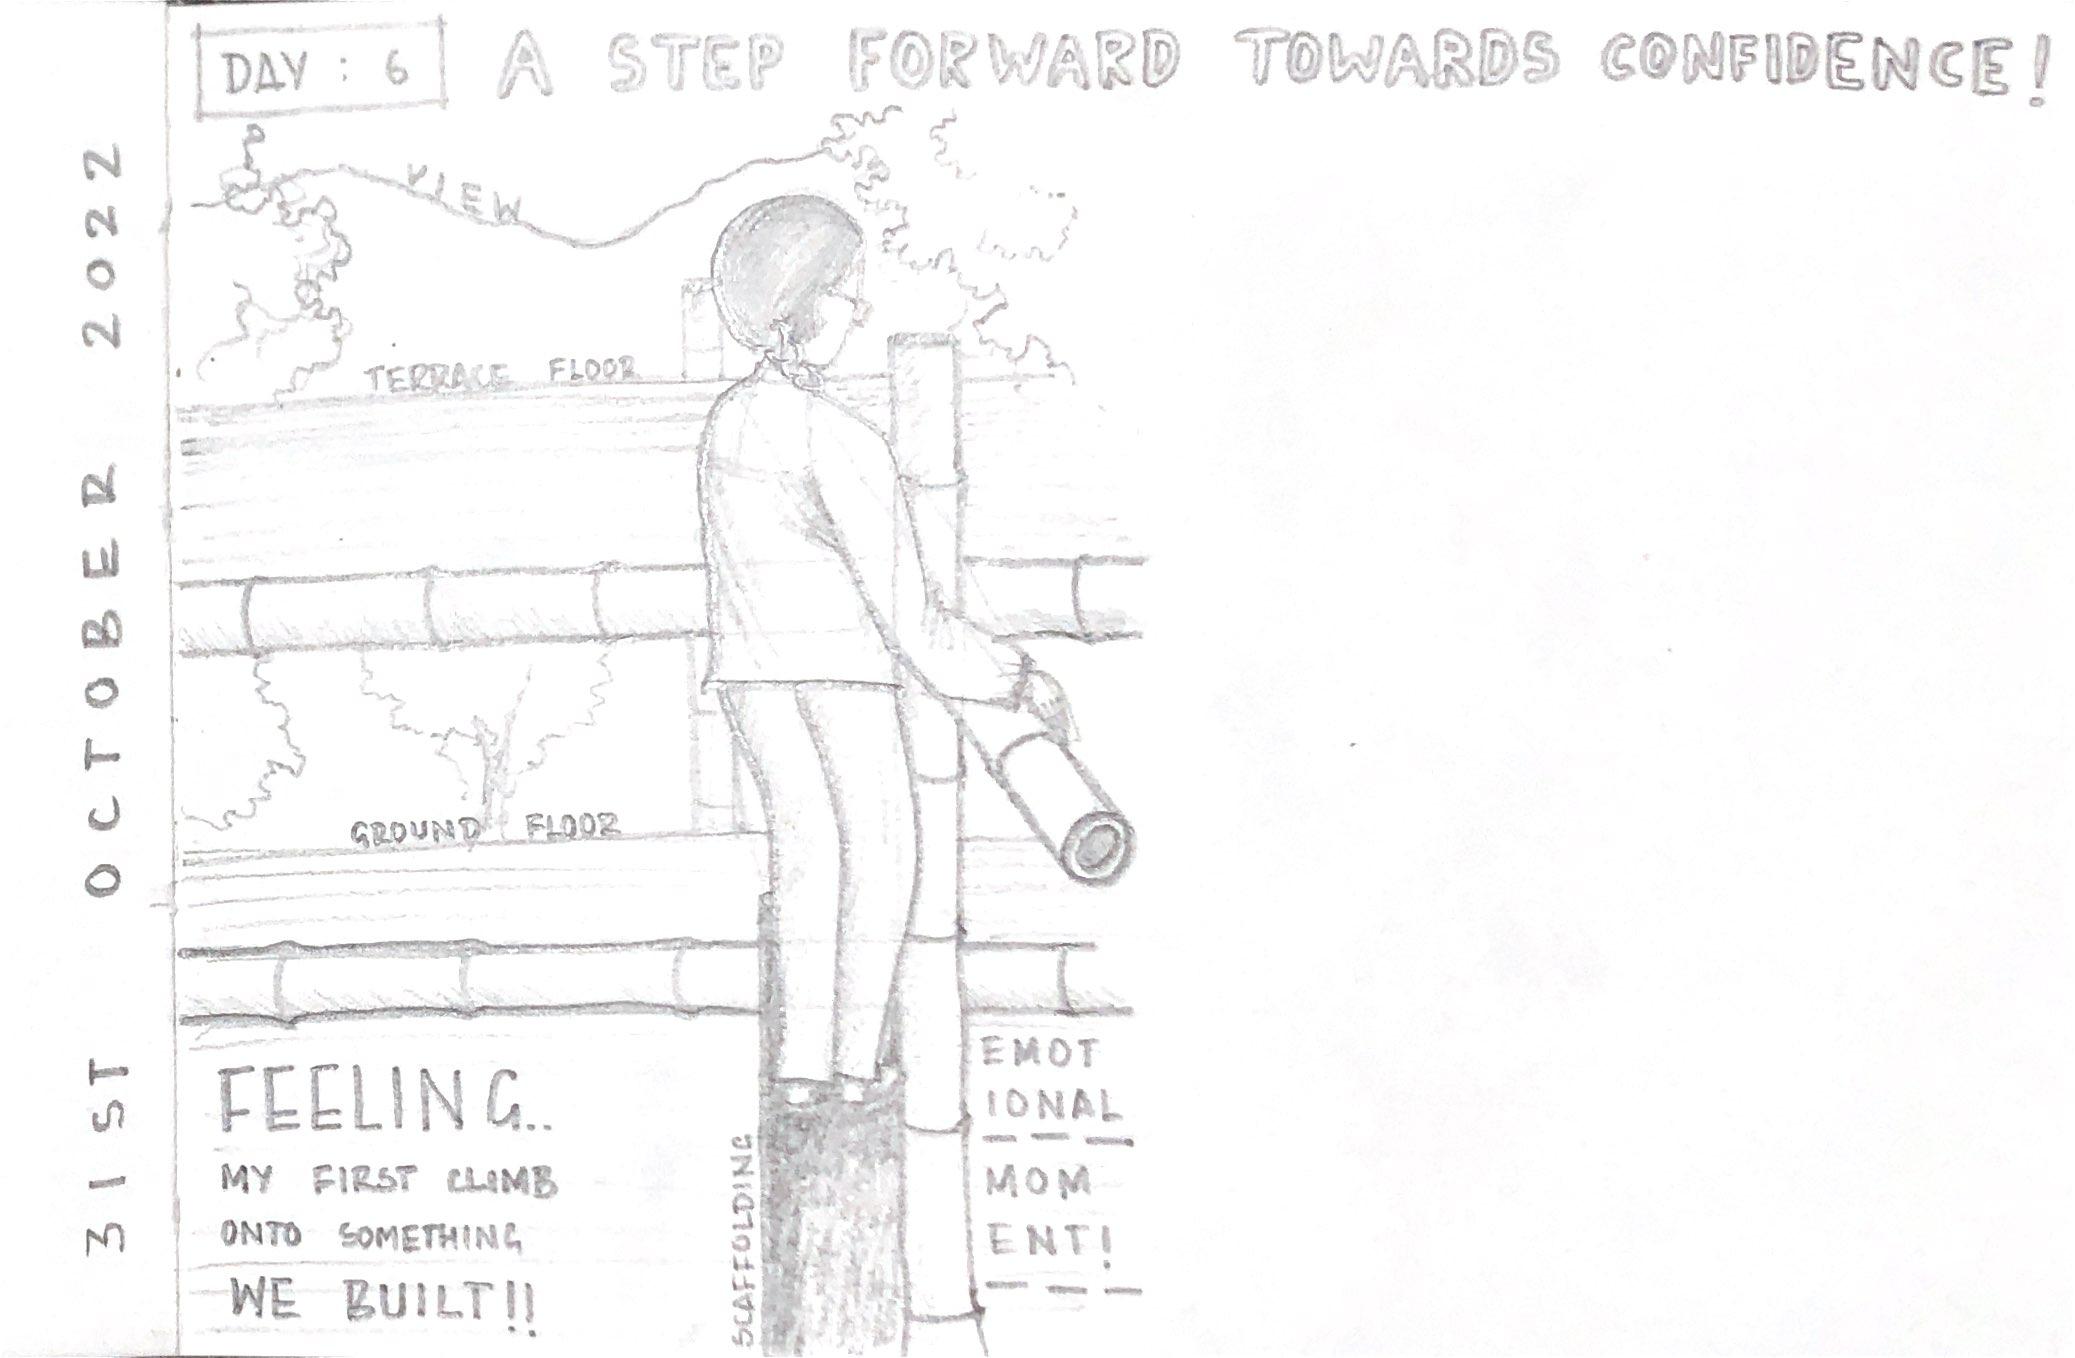 DAY : 6
A STEP FORWARD TOWARDS CONFIDENCE!
31ST OCTOBER 2022
VIEW
TERRACE FLOOR
GROUND FLOOR
FEELING..
MY FIRST CLIMB
ONTO SOMETHING
WE BUILT!!
SCAFFOLDING
EMOT
IONAL
MOM
ENT!